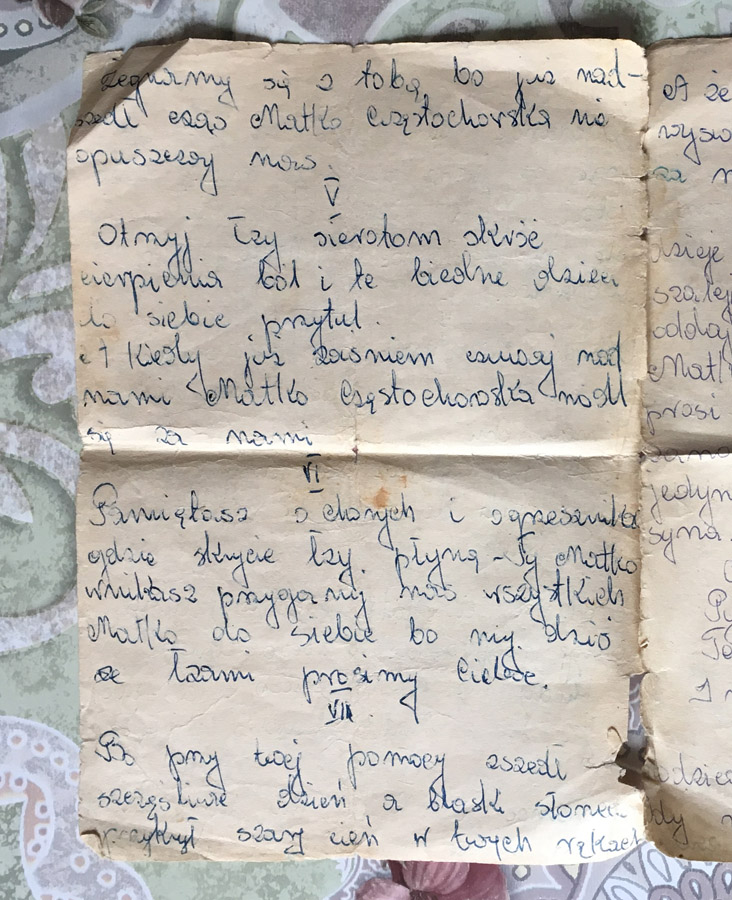 żegnamy się z tobą bo już nad-
szedł czas Matko Częstochowska nie
opuszczoy nas.
V
Otmyj łzy sierotom skróć
cierpienia ból i te biedne dzieci
do siebie przytul.
A Kiedy już zaśniem czuwaj nad
nami Matko Częstochowska módl
się za nami
VI
Pamiętasz o chorych i o grzesznika
gdzie skrycie łzy płyną Ty Matko
wnikasz przygarnij nas wszystkich
Matko do siebie bo my dziś
ze łzami prosimy Ciebie.
VII
Bo przy twej pomocy zszedł
szczęśliwie dzień a blask słońca
przykrył szary cień w twych rękach
A że
wyso
za n
dzieje
szalej
oddaj
Matk
prosi
jedyn
syna.